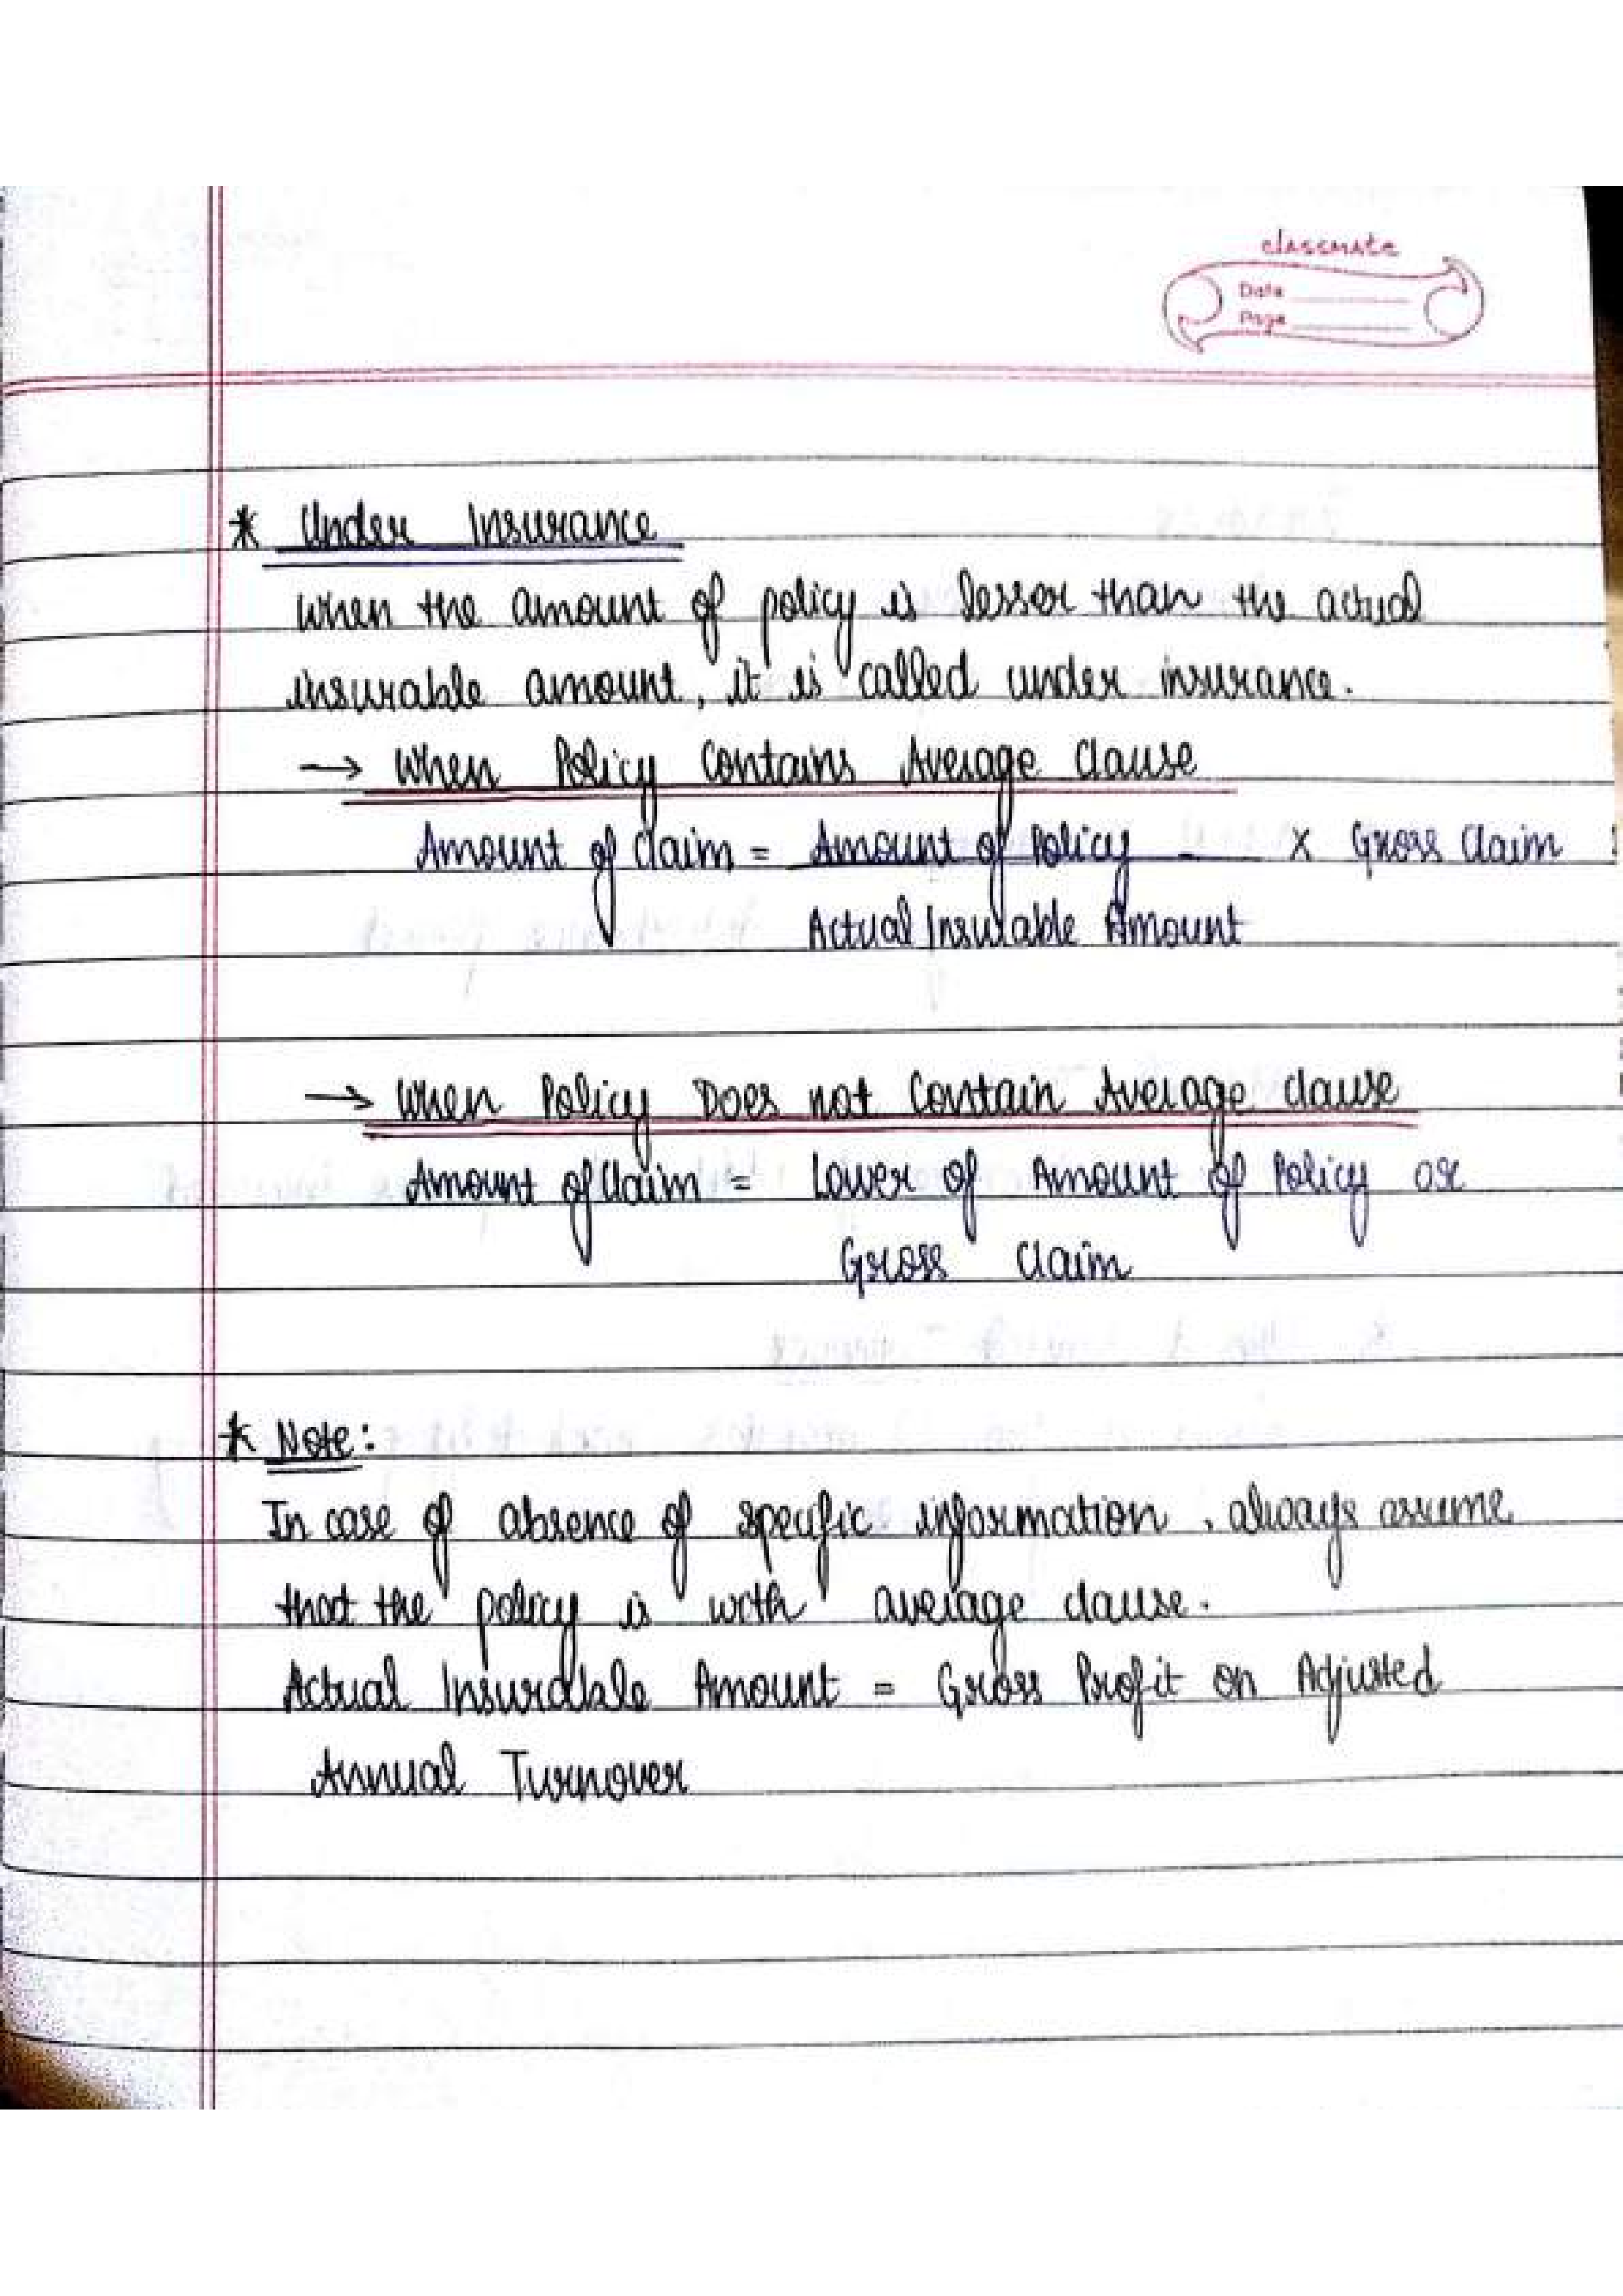 classmate
Date
Page
* Under Insurance
When the amount of policy is lesser than the actual
insurable amount, it is called under insurance.
→ When Policy Contains Average Clause
Amount of Claim = Amount of Policy × Gross Claim
Actual Insurable Amount
→ When Policy Does not Contain Average Clause
Amount of Claim = Lower of Amount of Policy or
Gross Claim
* Note:
In case of absence of specific information, always assume
that the policy is with average clause.
Actual Insurable Amount = Gross Profit on Adjusted
Annual Turnover